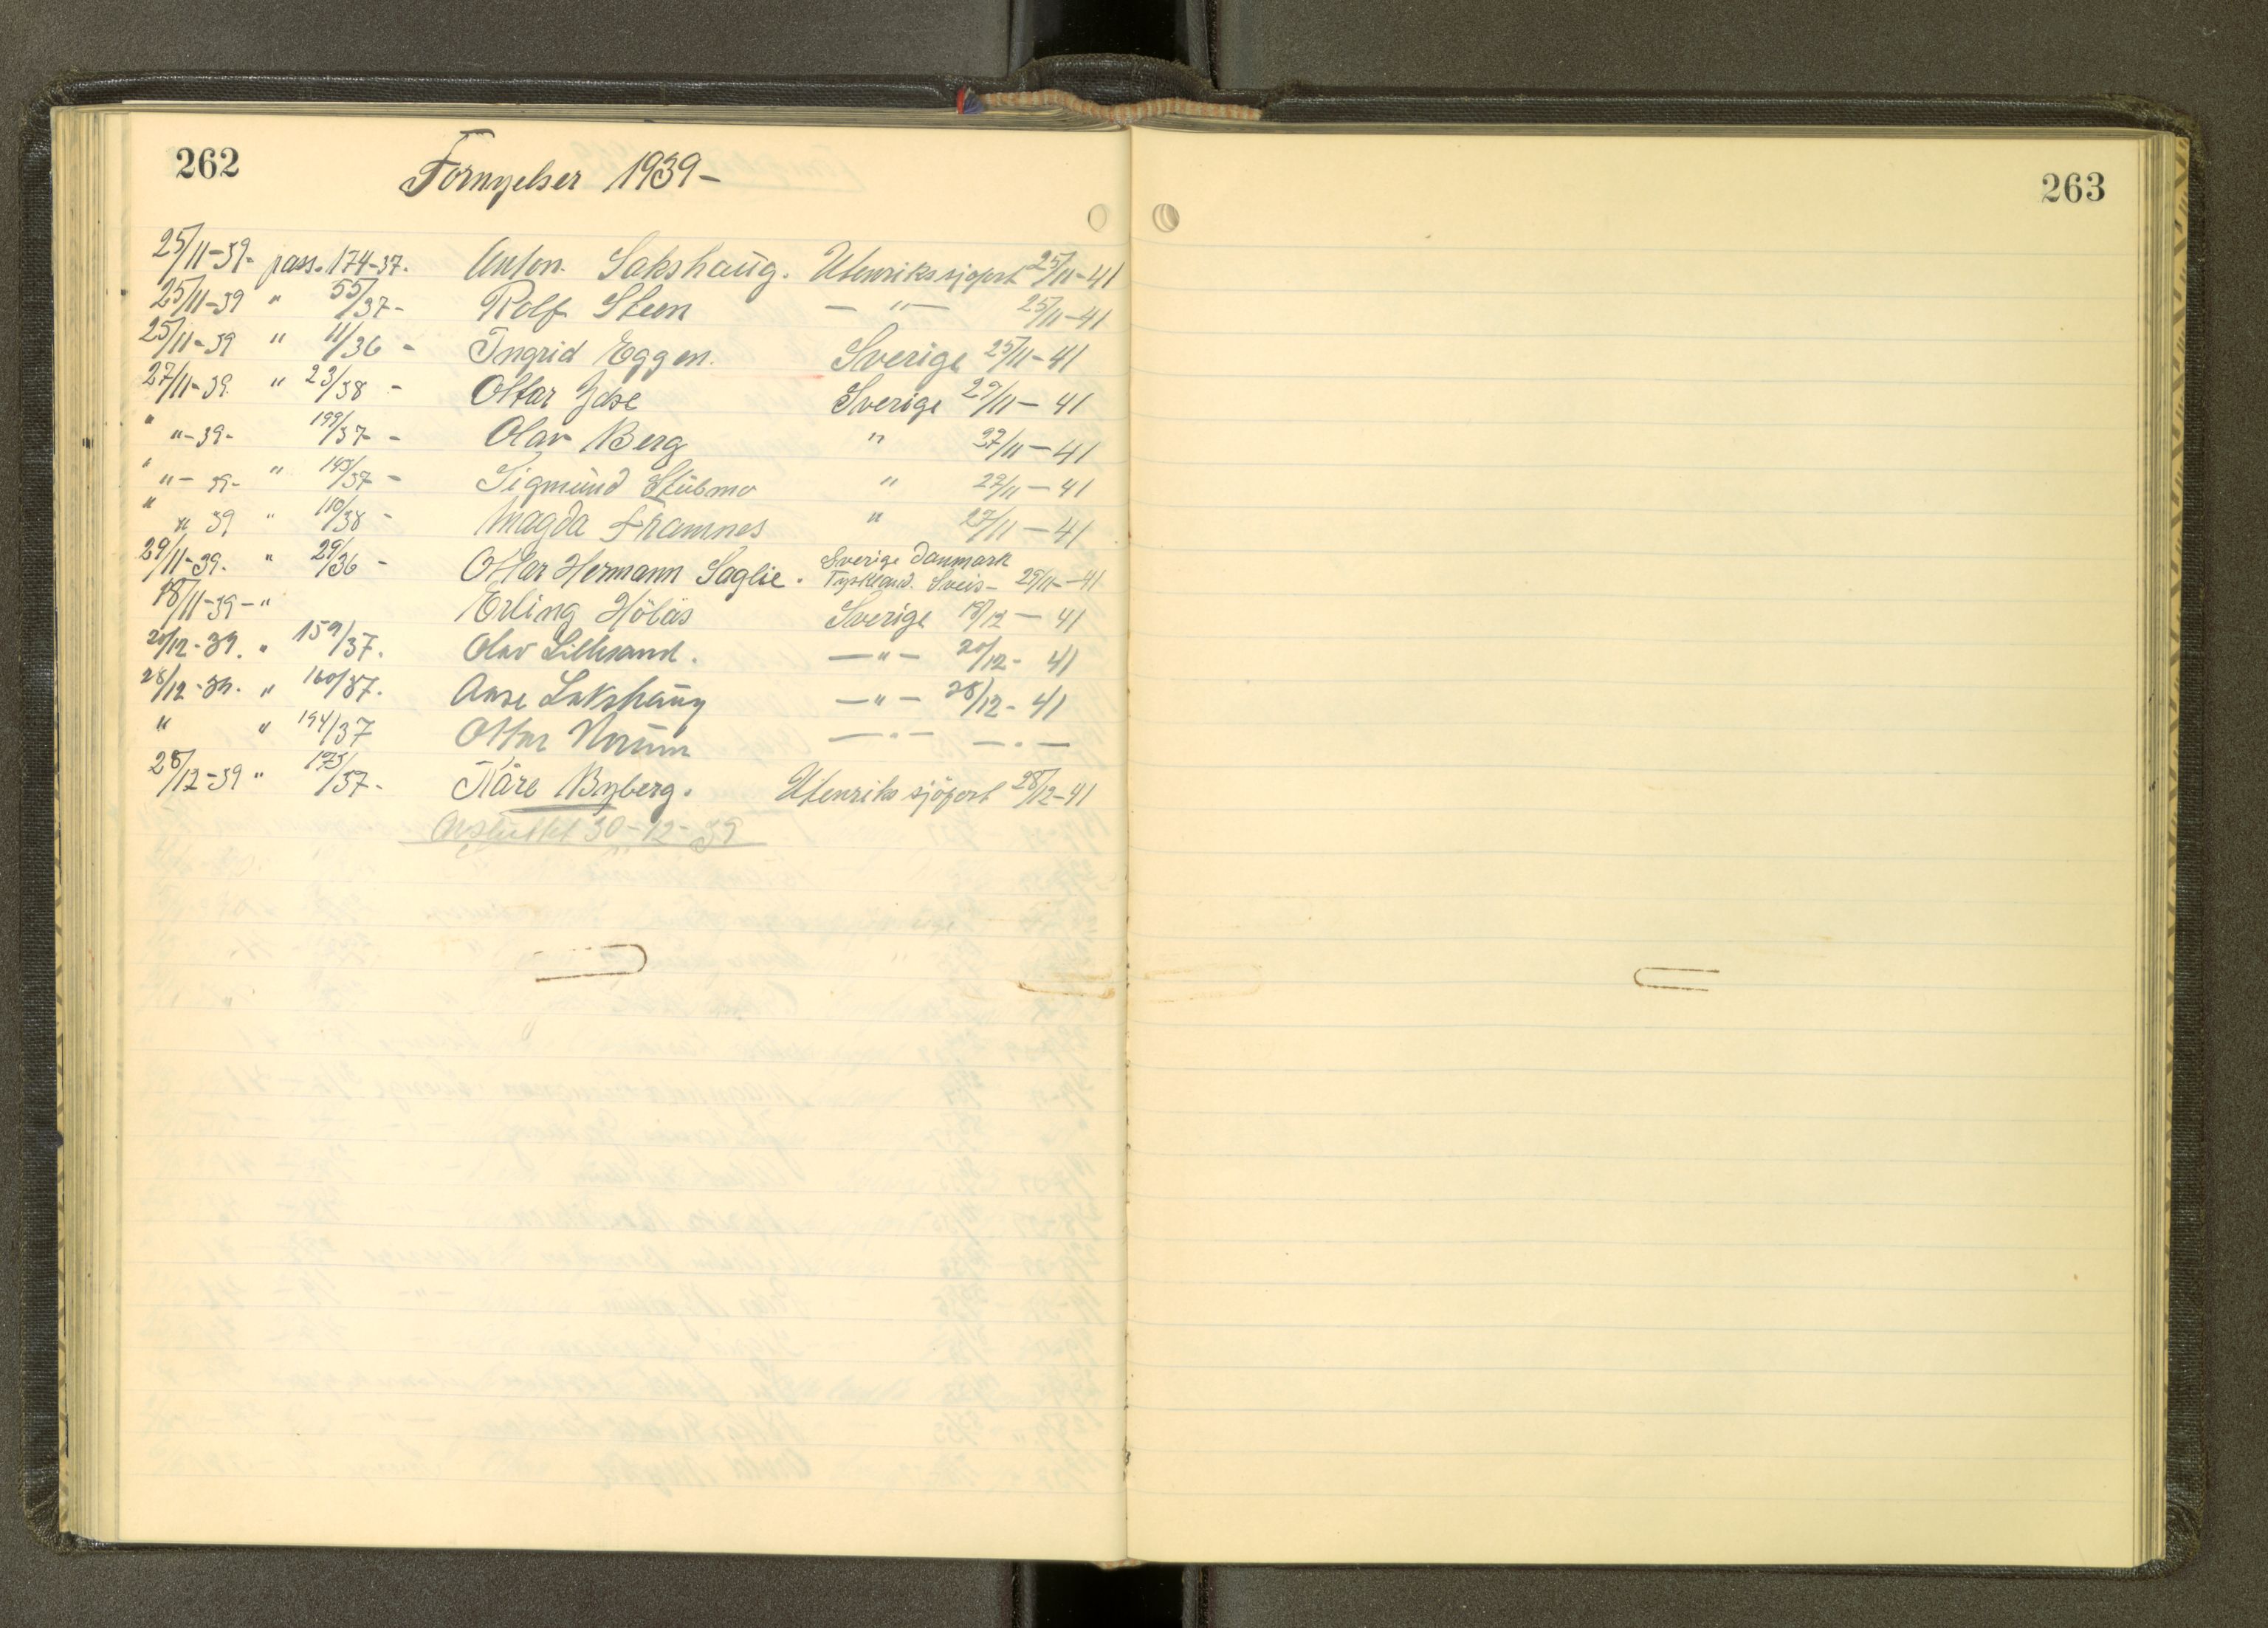 262
Fornyelser 1939-
25/11-39- pass. 174-37. Anton. Sakshaug. Utenrikssjøfart 25/11-41
25/11-39 " 55/37- Rolf Steen -"- 25/11-41
25/11-39 " 11/36 - Ingrid Eggen. Sverige 25/11-41
27/11-39. " 23/38 - Ottar Ydse Sverige 27/11-41
" "-39- 199/37- - Olav Berg " 27/11-41
" "- 39- " 145/37 - Sigmund Stubmo " 27/11-41
" " 39 " 110/38 - Magda Framnes " 27/11-41
29/11-39. " 29/36 - Ottar Hermann Saglie. Sverige Danmark
Tyskland. Sveis- 29/11-41
18/11-39-" Erling Hölås Sverige 18/12-41
20/12-39. " 159/37. Olav Lillesand. -"- 20/12-41
28/12-39. " 160/37. Aase Sakshaug -"- 28/12-41
" " 194/37 Ottar Norum -"- -"-
28/12-39 " 173/37- Kåre Byberg. Utenriks sjöfart 28/12-41
Avsluttet 30-12-39
263